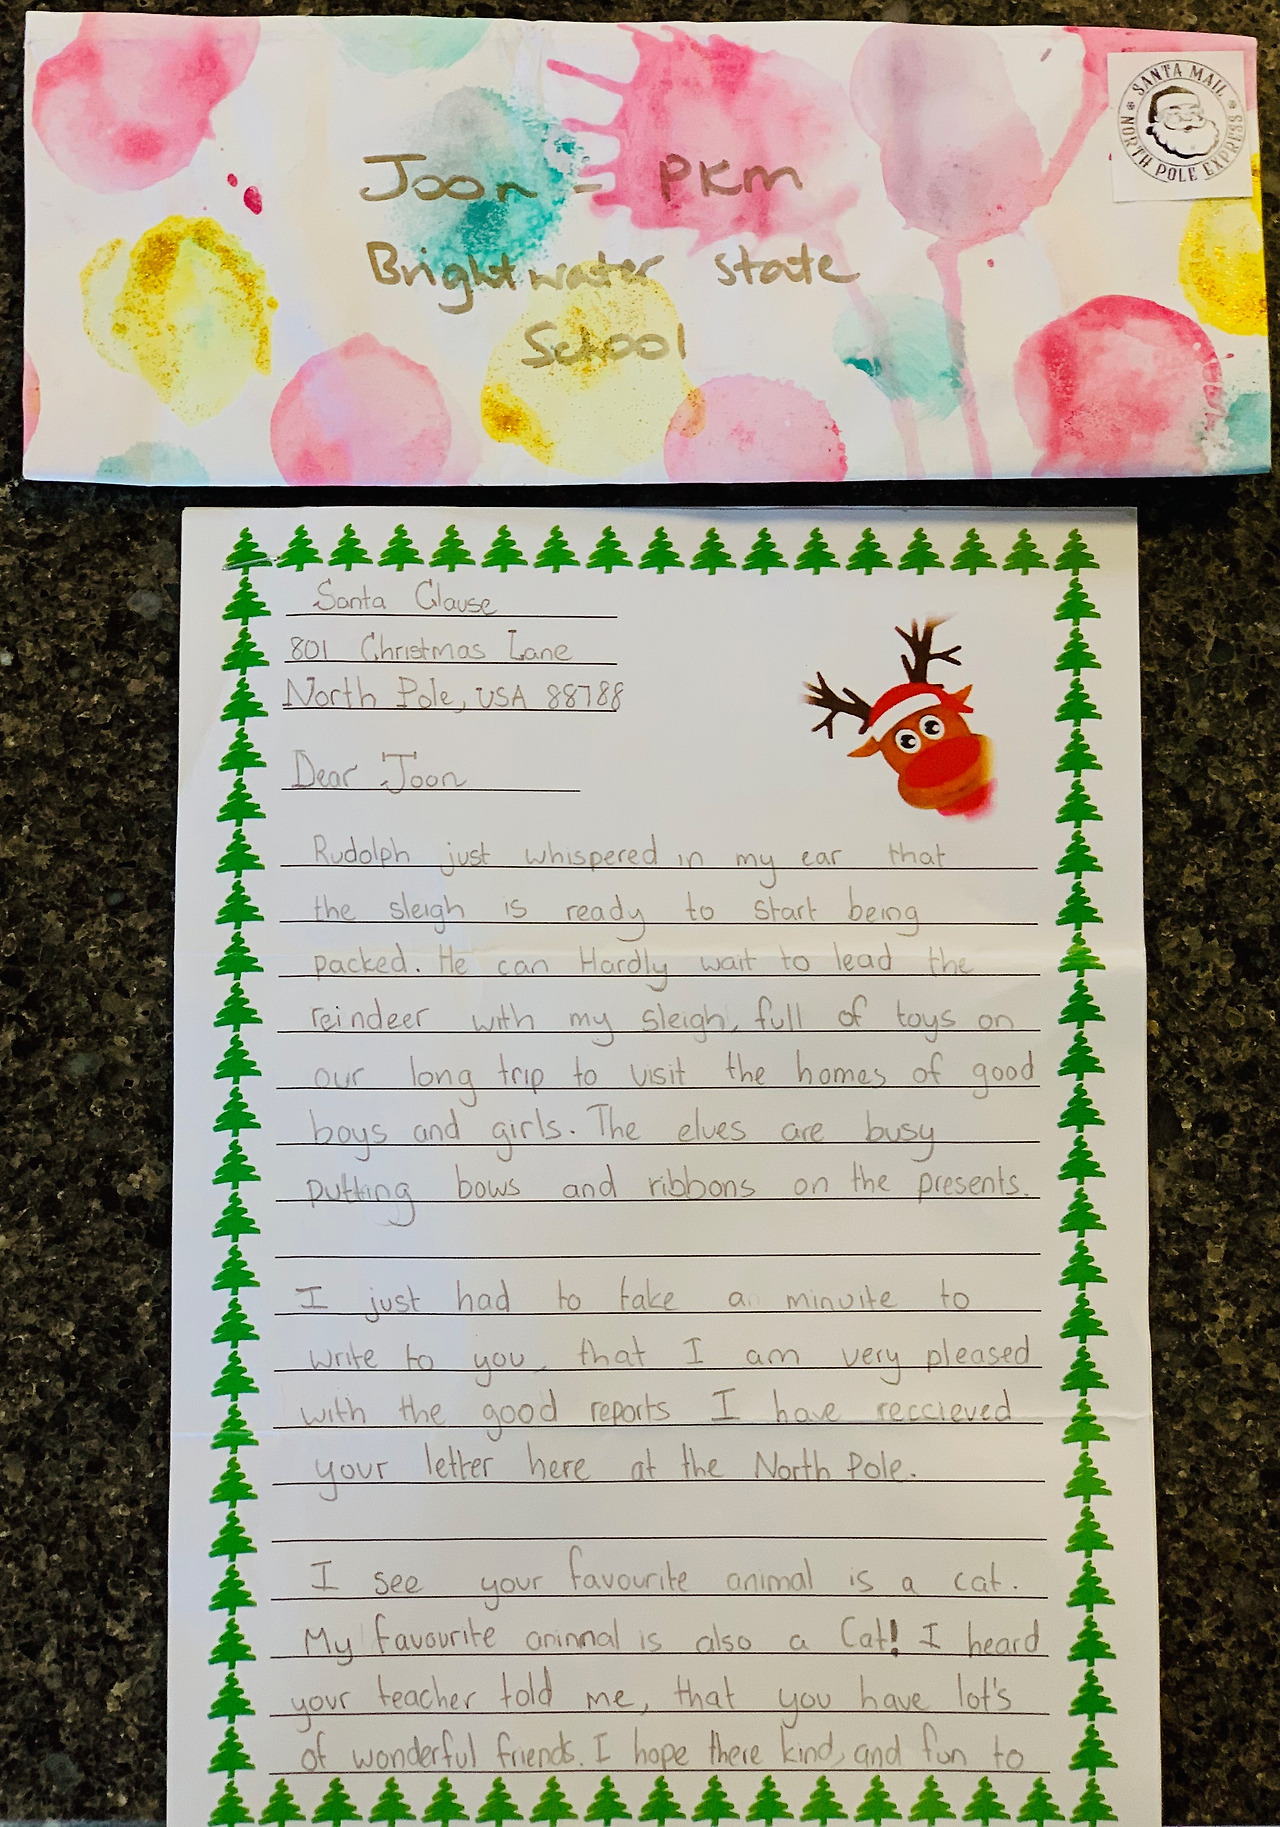 Joon - PKM
Brightwater state
School
SANTA MAIL
NORTH POLE EXPRESS
Santa Clause
801 Christmas Lane
North Pole, USA 88788
Dear Joon
Rudolph just whispered in my ear that
the sleigh is ready to start being
packed. He can Hardly wait to lead the
reindeer with my sleigh, full of toys on
our long trip to visit the homes of good
boys and girls. The elves are busy
putting bows and ribbons on the presents.
I just had to take a minuite to
write to you, that I am very pleased
with the good reports I have reccieved
your letter here at the North Pole.
I see your favourite animal is a cat.
My favourite aninmal is also a Cat! I heard
your teacher told me, that you have lot's
of wonderful friends. I hope there kind, and fun to